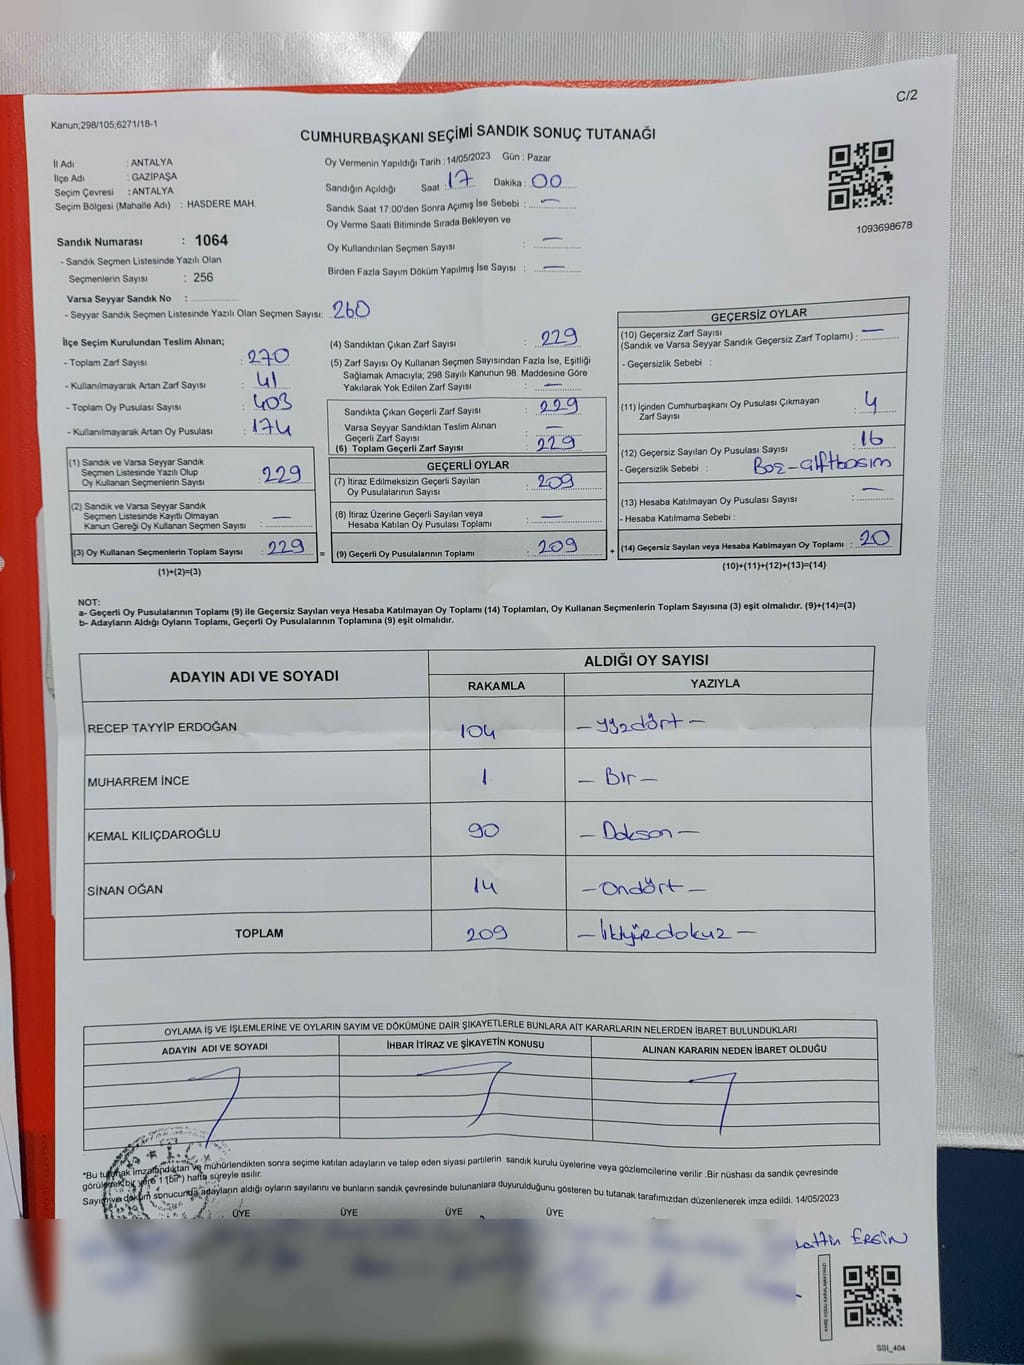 C/2
Kanun;298/105;6271/18-1
CUMHURBAŞKANI SEÇİMİ SANDIK SONUÇ TUTANAĞI
İl Adı : ANTALYA
İlçe Adı : GAZİPAŞA
Seçim Çevresi : ANTALYA
Seçim Bölgesi (Mahalle Adı) : HASDERE MAH.
Sandık Numarası : 1064
- Sandık Seçmen Listesinde Yazılı Olan
Seçmenlerin Sayısı : 256
Varsa Seyyar Sandık No :
- Seyyar Sandık Seçmen Listesinde Yazılı Olan Seçmen Sayısı: 260
Oy Vermenin Yapıldığı Tarih : 14/05/2023 Gün : Pazar
Sandığın Açıldığı Saat : 17 Dakika : 00
Sandık Saat 17:00'den Sonra Açımış İse Sebebi : —
Oy Verme Saati Bitiminde Sırada Bekleyen ve
Oy Kullandırılan Seçmen Sayısı : —
Birden Fazla Sayım Döküm Yapılmış İse Sayısı : —
1093698678
İlçe Seçim Kurulundan Teslim Alınan;
- Toplam Zarf Sayısı : 270
- Kullanılmayarak Artan Zarf Sayısı : 41
- Toplam Oy Pusulası Sayısı : 403
- Kullanılmayarak Artan Oy Pusulası : 174
(1) Sandık ve Varsa Seyyar Sandık
Seçmen Listesinde Yazılı Olup
Oy Kullanan Seçmenlerin Sayısı : 229
(2) Sandık ve Varsa Seyyar Sandık
Seçmen Listesinde Kayıtlı Olmayan
Kanun Gereği Oy Kullanan Seçmen Sayısı : —
(3) Oy Kullanan Seçmenlerin Toplam Sayısı : 229 =
(1)+(2)=(3)
(4) Sandıktan Çıkan Zarf Sayısı : 229
(5) Zarf Sayısı Oy Kullanan Seçmen Sayısından Fazla İse, Eşitliği
Sağlamak Amacıyla; 298 Sayılı Kanunun 98. Maddesine Göre
Yakılarak Yok Edilen Zarf Sayısı : —
Sandıkta Çıkan Geçerli Zarf Sayısı : 229
Varsa Seyyar Sandıktan Teslim Alınan
Geçerli Zarf Sayısı : —
(6) Toplam Geçerli Zarf Sayısı : 229
GEÇERLİ OYLAR
(7) İtiraz Edilmeksizin Geçerli Sayılan
Oy Pusulalarının Sayısı : 209
(8) İtiraz Üzerine Geçerli Sayılan veya
Hesaba Katılan Oy Pusulası Toplamı : —
(9) Geçerli Oy Pusulalarının Toplamı : 209 +
GEÇERSİZ OYLAR
(10) Geçersiz Zarf Sayısı
(Sandık ve Varsa Seyyar Sandık Geçersiz Zarf Toplamı) : —
- Geçersizlik Sebebi :
(11) İçinden Cumhurbaşkanı Oy Pusulası Çıkmayan
Zarf Sayısı : 4
(12) Geçersiz Sayılan Oy Pusulası Sayısı : 16
- Geçersizlik Sebebi : Boş - çiftbasım
(13) Hesaba Katılmayan Oy Pusulası Sayısı : —
- Hesaba Katılmama Sebebi :
(14) Geçersiz Sayılan veya Hesaba Katılmayan Oy Toplamı : 20
(10)+(11)+(12)+(13)=(14)
NOT:
a- Geçerli Oy Pusulalarının Toplamı (9) ile Geçersiz Sayılan veya Hesaba Katılmayan Oy Toplamı (14) Toplamları, Oy Kullanan Seçmenlerin Toplam Sayısına (3) eşit olmalıdır. (9)+(14)=(3)
b- Adayların Aldığı Oyların Toplamı, Geçerli Oy Pusulalarının Toplamına (9) eşit olmalıdır.
ADAYIN ADI VE SOYADI ALDIĞI OY SAYISI
RAKAMLA YAZIYLA
RECEP TAYYİP ERDOĞAN 104 - yüzdört -
MUHARREM İNCE 1 - Bir -
KEMAL KILIÇDAROĞLU 90 - Doksan -
SİNAN OĞAN 14 - ondört -
TOPLAM 209 - ikiyüzdokuz -
OYLAMA İŞ VE İŞLEMLERİNE VE OYLARIN SAYIM VE DÖKÜMÜNE DAİR ŞİKAYETLERLE BUNLARA AİT KARARLARIN NELERDEN İBARET BULUNDUKLARI
ADAYIN ADI VE SOYADI İHBAR İTİRAZ VE ŞİKAYETİN KONUSU ALINAN KARARIN NEDEN İBARET OLDUĞU
*Bu tutanak imzalandıktan ve mühürlendikten sonra seçime katılan adayların ve talep eden siyasi partilerin sandık kurulu üyelerine veya gözlemcilerine verilir .Bir nüshası da sandık çevresinde
görülecek bir yere 1 (bir) hafta süreyle asılır.
Sayım ve döküm sonucunda adayların aldığı oyların sayılarını ve bunların sandık çevresinde bulunanlara duyurulduğunu gösteren bu tutanak tarafımızdan düzenlenerek imza edildi. 14/05/2023
ÜYE ÜYE ÜYE ÜYE
ERGİN
SSI_404